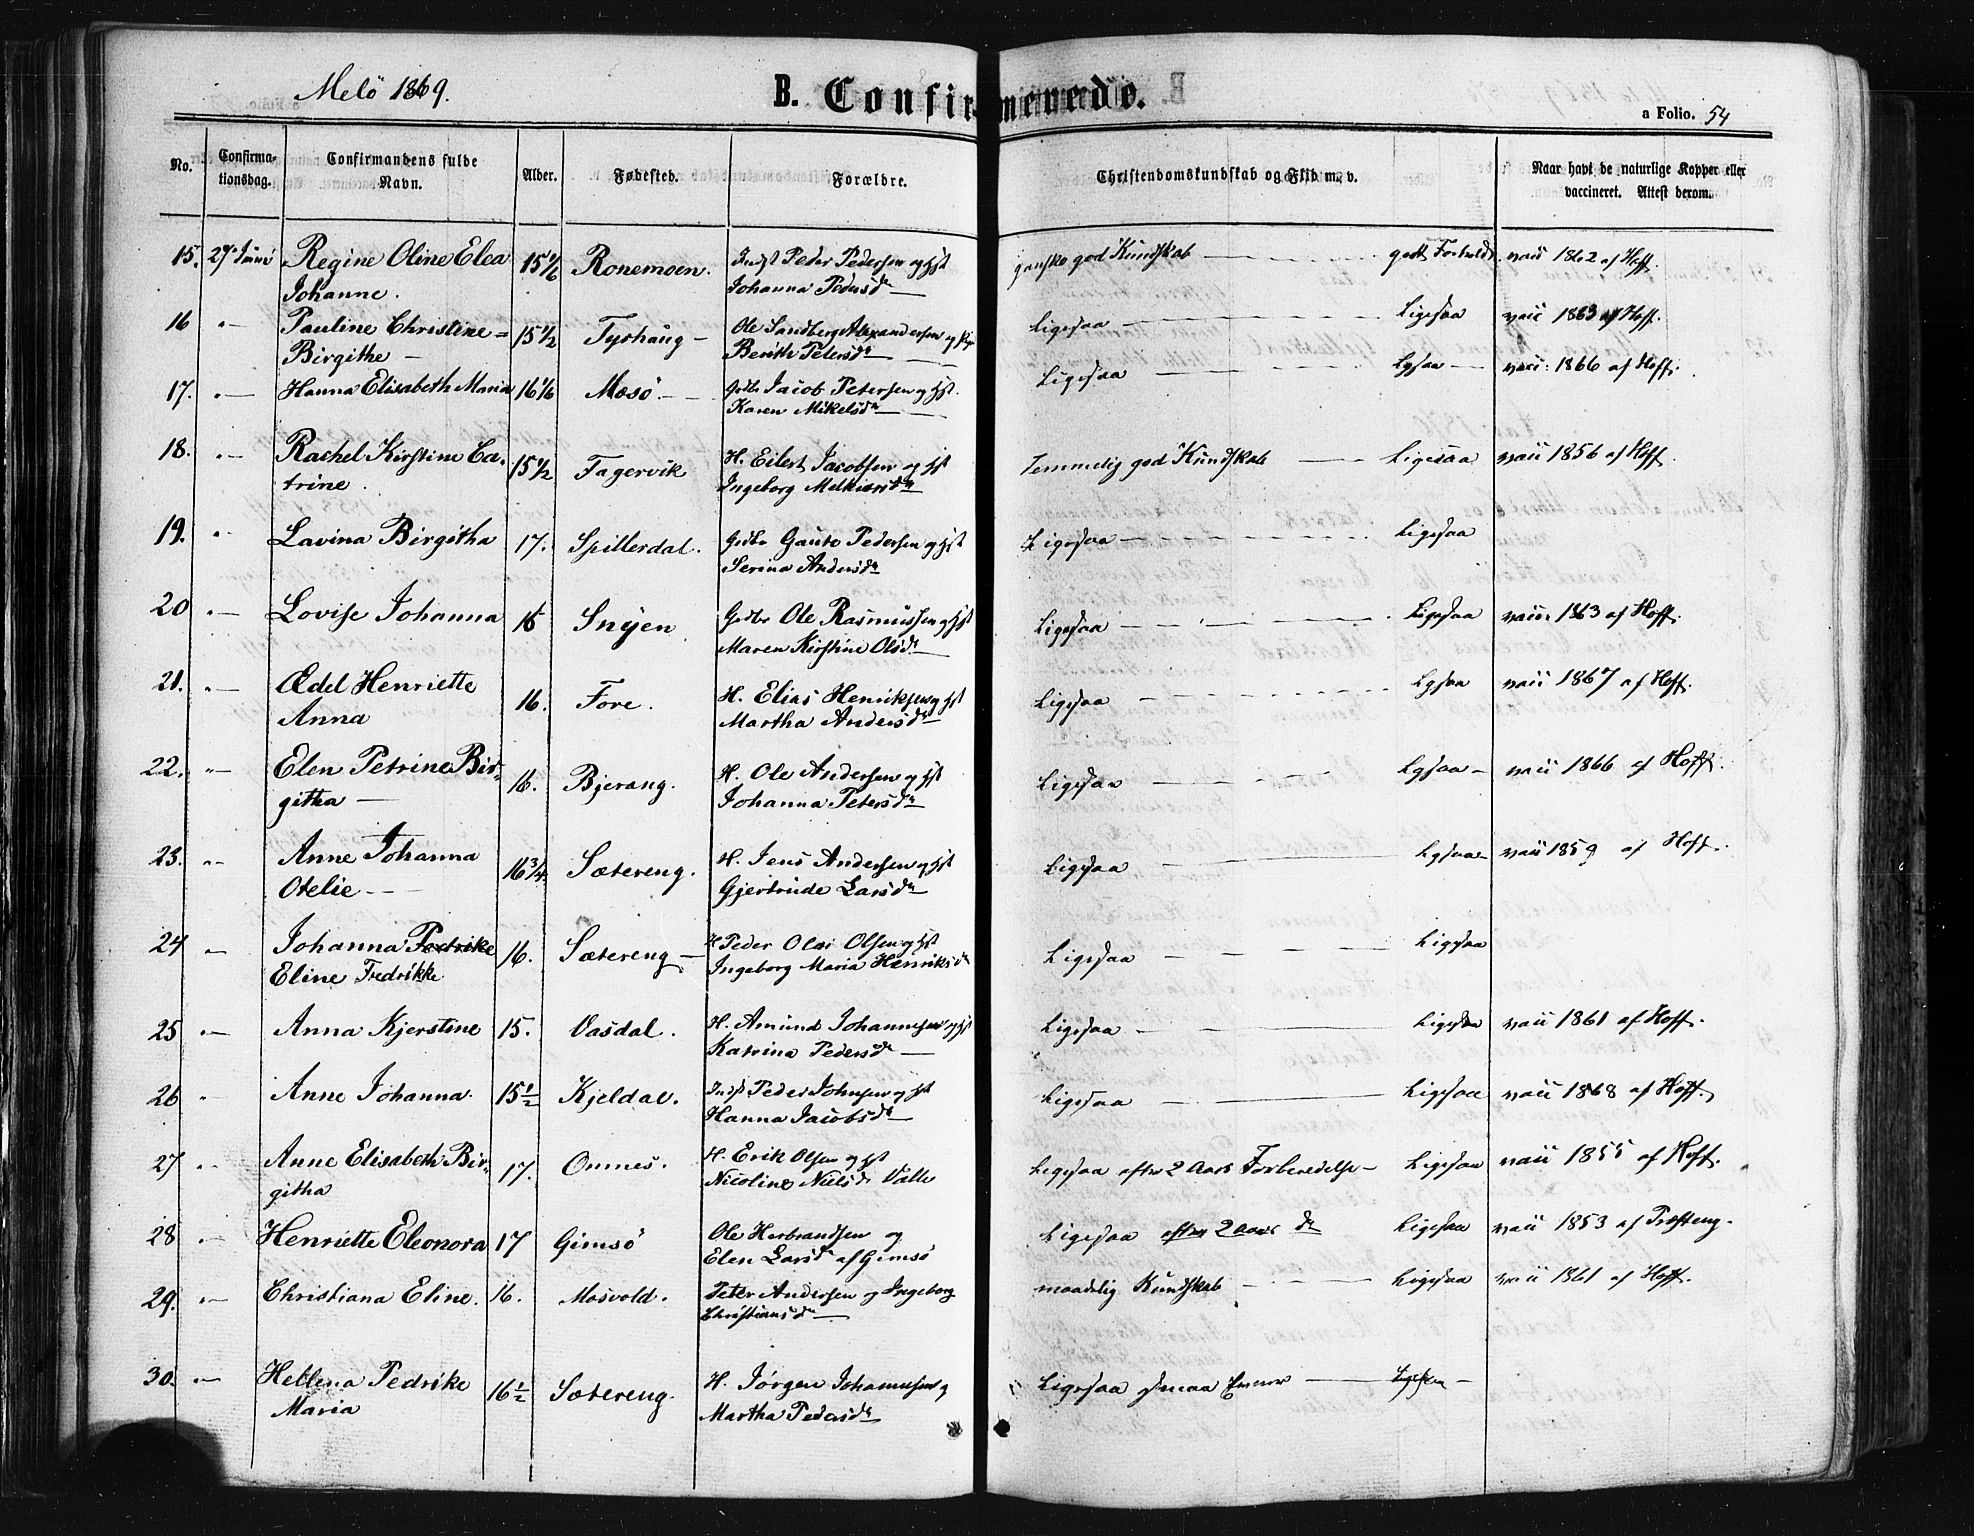 Melö 1869.
B. Confirmerede.
a Folio. 54
No.
Confirma-
tionsdag.
Confirmandens fulde
Navn.
Alder.
Fødested.
Forældre.
Christendomskundskab og Flid m. v.
Naar havt de naturlige Kopper eller
vaccineret. Attest derom.
15. 27 Juni Regine Oline Elea 15 1/6 Ronemoen. Indst Peder Pedersen og Hst ganske god Kundskab godt Forhold vacc 1862 af Hoff.
Johanne. Johanna Pedersd
16 "— Pauline Christine= 15 1/2 Tyshaug — Ole Sandberg Alexandersen og Ligesaa Ligesaa vacc 1863 af Hoff.
Birgithe — Berith Petersd
17. "— Hanna Elisabeth Maria 16 1/6 Mesö — Gdbr Jacob Petersen og Hst. Ligesaa Lgsaa — vacc: 1866 af Hoff.
Karen Mikelsd
18. "— Rachel Kirstine Ca- 15 1/2 Fagervik H. Eilert Jacobsen og Hst Temmelig god Kundskab Ligesaa vacc 1856 af Hoff
trine. Ingeborg Melkiorsd
19. "— Lavina Birgitha 17. Spillerdal. Gdbr Gaute Pedersen og Hst Ligesaa Ligesaa
Serina Andersd
20 "— Lovise Johanna Snyen Gdbr Ole Rasmussen og Hst Ligesaa Ligesaa vacc. 1863 af Hoff.
Maren Kirstine Olsd
21. "— Ædel Henriette 16. Fore. H. Elias Henriksen og Hst Ligesaa Lgsaa vacc 1867 af Hoff.
Anna Martha Andersd
22. "— Elen Petrine Bir- 16. Bjerang. H. Ole Andersen og Hst Ligesaa Lgsaa — vacc 1866 af Hoff.
githa — Johanna Petersd
23. "— Anne Johanna 16 3/4. Sætereng. H. Jens Andersen og Hst Ligesaa Lgsaa — vacc 1859 af Hoff.
Otelie — Gjertrude Larsd
24 "— Johanna Fredrike 16. Sætereng — H. Peder Olai Olsen og Hst Ligesaa Ligesaa
Eline Fredrikke Ingeborg Maria Henriksd
25 "— Anna Kjerstine 15. Vasdal. H. Amund Johannesen og Hst Ligesaa Ligesaa vacc 1861 af Hoff.
Katrina Pedersd
26 " Anne Johanna. 15 1/2 Kjeldal. Indst Peder Johnsen og Hst Ligesaa Ligesaa vacc 1868 af Hoff.
Hanna Jacobsd
27 "— Anne Elisabeth Bir- 17. Onnes. H. Erik Olsen og Hst Ligesaa efter 2 Aars Forberedelse — Ligesaa vacc 1855 af Hoff.
githa Nicoline Nielsd Valle
28 "— Henriette Eleonora 17 Gimsö Ole Herbrandsen og Ligesaa efter 2 Aars do Ligesaa vacc 1853 af
Elen Larsd af Gimsö
29. "— Christiana Eline. 16. Mosvold. Peter Andersen og Ingeborg maadelig Kundskab Ligesaa vacc 1861 af Hoff.
Christiansd
30. "— Hellena Pedrike 16 1/2 Sætereng. H. Jörgen Johannesen og Ligesaa Ligesaa —
Maria Martha Pedersd